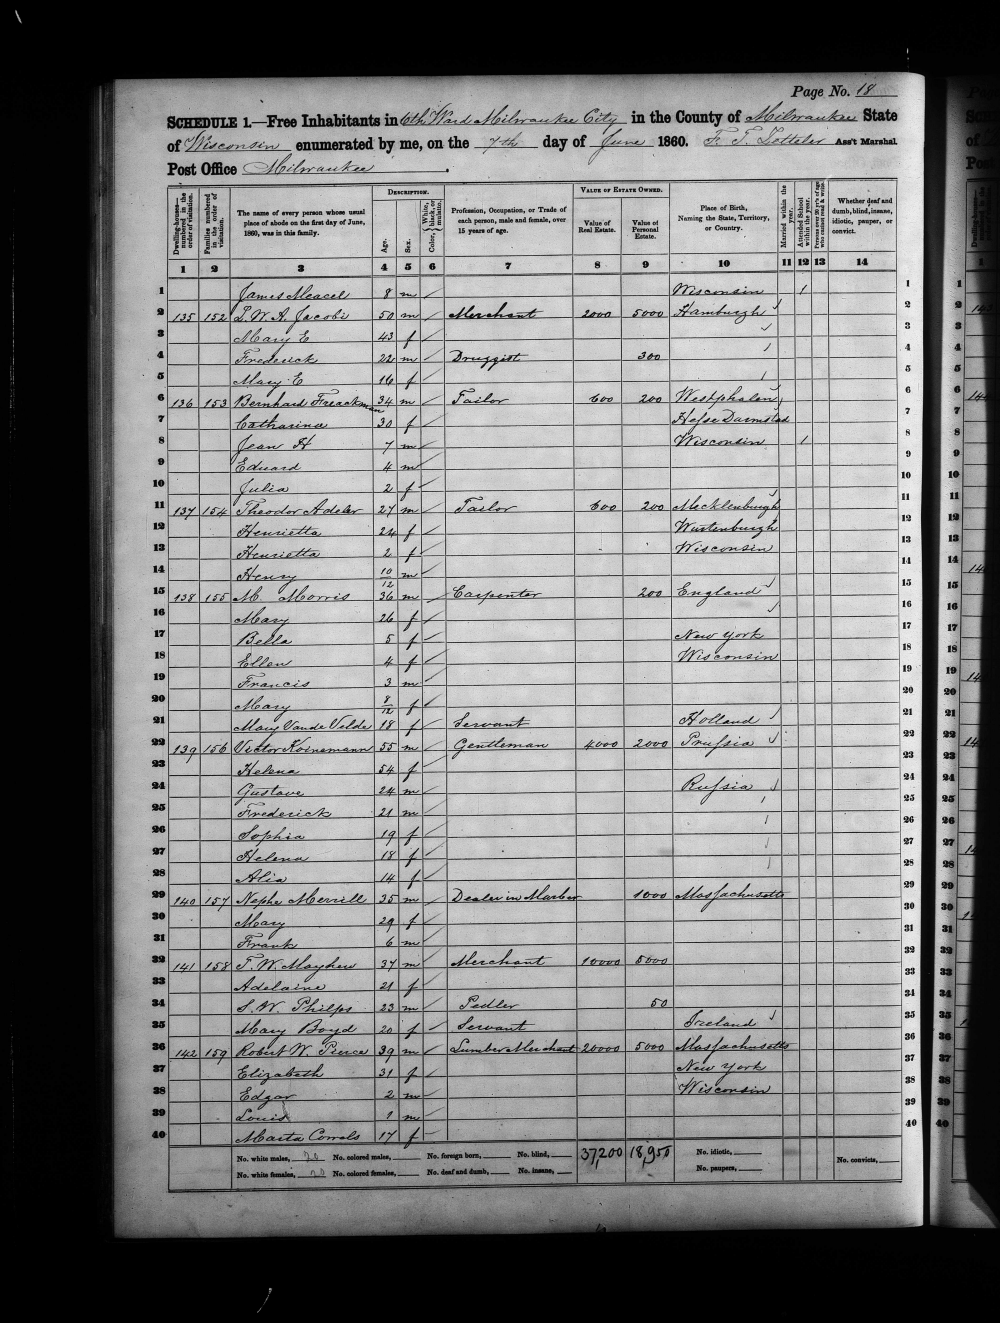 Page No. 18
SCHEDULE 1.—Free Inhabitants in 6th Ward Milwaukee City in the County of Milwaukee State
of Wisconsin enumerated by me, on the 7th day of June 1860. Ass't Marshal
Post Office Milwaukee
Dwelling-houses—numbered in the order of visitation. Families numbered in the order of visitation. The name of every person whose usual place of abode on the first day of June, 1860, was in this family. DESCRIPTION. Age. Sex. Color, White, black, or mulatto. Profession, Occupation, or Trade of each person, male and female, over 15 years of age. VALUE OF ESTATE OWNED. Value of Real Estate. Value of Personal Estate. Place of Birth, Naming the State, Territory, or Country. Married within the year. Attended School within the year. Persons over 20 y'rs of age who cannot read & write. Whether deaf and dumb, blind, insane, idiotic, pauper, or convict.
1 2 3 4 5 6 7 8 9 10 11 12 13 14
1 James 8 m Wisconsin 1 1
2 135 152 L. W. A. Jacobi 50 m Merchant 2000 5000 Hamburgh 2
3 Mary E 43 f 3
4 Frederick 22 m Druggist 300 4
5 Mary E 16 f 5
6 136 153 Bernhard 34 m Tailor 600 200 Westphalen 6
7 Catharina 30 f Hesse Darmstad 7
8 Jean H 7 m Wisconsin 1 8
9 Eduard 4 m 9
10 Julia 2 f 10
11 137 154 Theodor Adeler 27 m Tailor 600 200 Mecklenburgh 11
12 Henrietta 24 f Wurtenburgh 12
13 Henrietta 2 f Wisconsin 13
14 Henry 10/12 m 14
15 138 155 M. Morris 36 m Carpenter 200 England 15
16 Mary 26 f 16
17 Bella 5 f New York 17
18 Ellen 4 f Wisconsin 18
19 Francis 3 m 19
20 Mary 8/12 f 20
21 Mary Vande Velde 18 f Servant Holland 21
22 139 156 Victor Koinemann 55 m Gentleman 4000 2000 Prussia 22
23 Helena 54 f 23
24 Gustave 24 m Russia 24
25 Frederick 21 m 25
26 Sophia 19 f 26
27 Helena 18 f 27
28 Alia 14 f 28
29 140 157 Merrill 35 m Dealer in Marber 1000 Massachusetts 29
30 Mary 29 f 30
31 Frank 6 m 31
32 141 158 T. W. Mayhew 37 m Merchant 10000 5000 32
33 Adelaine 21 f 33
34 S. W. Philps 23 m Pedler 50 34
35 Mary Boyd 20 f Servant Ireland 35
36 142 159 Robert W. Pierce 39 m Lumber Merchant 20000 5000 Massachusetts 36
37 Elizabeth 31 f New York 37
38 Edgar 2 m Wisconsin 38
39 Louis 1 m 39
40 Maria 17 f 40
No. white males, 20 No. colored males, No. foreign born, No. blind, 37,200 18,950 No. idiotic, No. convicts,
No. white females, 20 No. colored females, No. deaf and dumb, No. insane, No. paupers,